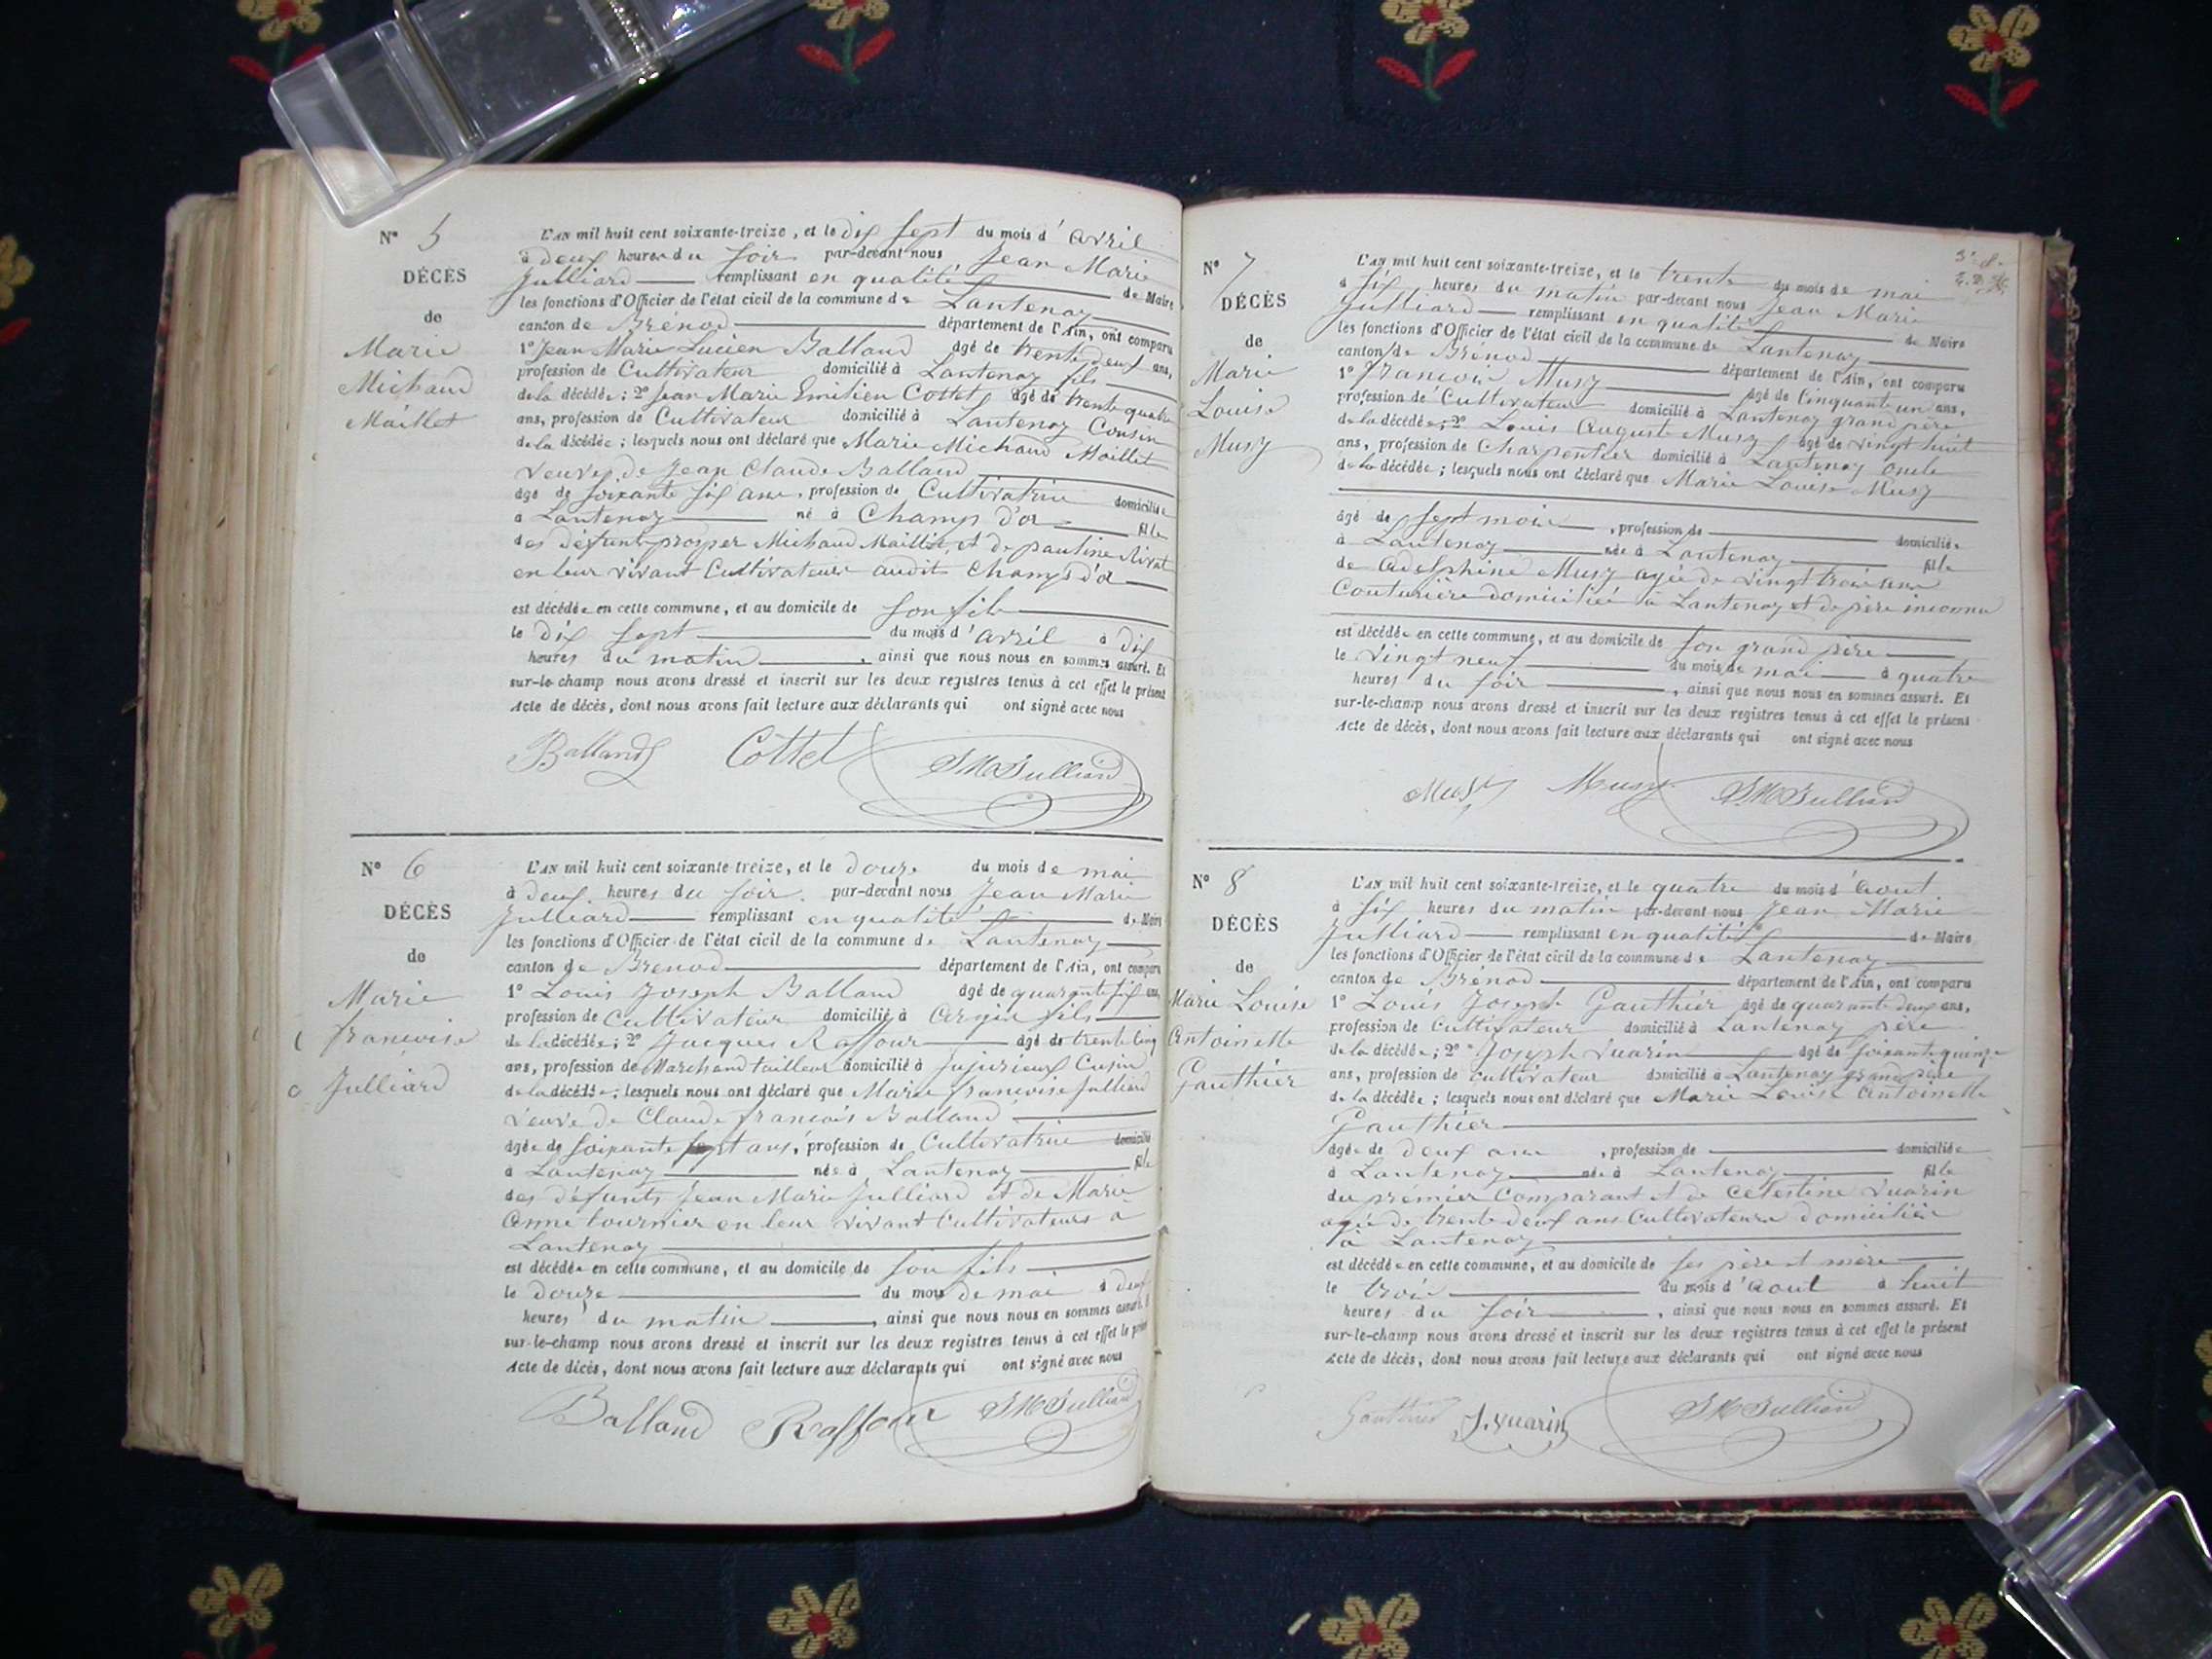 N° 5
DÉCÈS
de
Marie
Michaud
Maillet
L'AN mil huit cent soixante-treize, et le dix sept du mois d'avril
à deux heures du soir par-devant nous Jean Marie
Julliard remplissant en qualité de Maire
les fonctions d'Officier de l'état civil de la commune de Lantenay
canton de Brénod département de l'Ain, ont comparu
1° Jean Marie Lucien Balland âgé de trente deux ans,
profession de Cultivateur domicilié à Lantenay fils
de la décédée; 2° Jean Marie Emilien Cottet âgé de trente quatre
ans, profession de Cultivateur domicilié à Lantenay Cousin
de la décédée; lesquels nous ont déclaré que Marie Michaud Maillet
veuve de Jean Claude Balland
âgé de soixante six ans, profession de Cultivatrice domiciliée
à Lantenay né à Champ d'or fille
des défunts prosper Michaud Maillet, et de pauline
en leur vivant Cultivateurs audit Champ d'or
est décédée en cette commune, et au domicile de son fils
le dix sept du mois d'avril à dix
heures du matin, ainsi que nous nous en sommes assuré. Et
sur-le-champ nous avons dressé et inscrit sur les deux registres tenus à cet effet le présent
Acte de décès, dont nous avons fait lecture aux déclarants qui ont signé avec nous
Balland Cottet JMJulliard
N° 6
DÉCÈS
de
Marie
francoise
Julliard
L'AN mil huit cent soixante-treize, et le douze du mois de mai
à deux heures du soir par-devant nous Jean Marie
Julliard remplissant en qualité de Maire
les fonctions d'Officier de l'état civil de la commune de Lantenay
canton de Brenod département de l'Ain, ont comparu
1° Louis Joseph Balland âgé de quarante six ans,
profession de Cultivateur domicilié à fils
de la décédée; 2° Jacques Raffour âgé de trente cinq
ans, profession de Marchand tailleur domicilié à Jujurieux Cusin
de la décédée; lesquels nous ont déclaré que Marie francoise Julliard
veuve de Claude francois Balland
âgée de soixante sept ans, profession de Cultivatrice domicilié
à Lantenay née à Lantenay fille
des défunts Jean Marie Julliard et de Marie
Anne tournier en leur vivant Cultivateurs a
Lantenay
est décédée en cette commune, et au domicile de son fils
le douze du mois de mai à deux
heures du matin, ainsi que nous nous en sommes assuré. Et
sur-le-champ nous avons dressé et inscrit sur les deux registres tenus à cet effet le présent
Acte de décès, dont nous avons fait lecture aux déclarants qui ont signé avec nous
Balland Raffour JMJulliard
N° 7
DÉCÈS
de
Marie
Louise
Musy
L'AN mil huit cent soixante-treize, et le trente du mois de mai
à six heures du matin par-devant nous Jean Marie
Julliard remplissant en qualité de Maire
les fonctions d'Officier de l'état civil de la commune de Lantenay
canton de Brénod département de l'Ain, ont comparu
1° francois Musy âgé de Cinquante un ans,
profession de Cultivateur domicilié à Lantenay grand père
de la décédée; 2° Louis Auguste Musy âgé de vingt huit
ans, profession de Charpentier domicilié à Lantenay oncle
de la décédée; lesquels nous ont déclaré que Marie Louise Musy
âgé de sept mois, profession de domiciliée
à Lantenay née à Lantenay fille
de Adelphine Musy agée de vingt trois ans
Couturière domiciliée à Lantenay et de père inconnu
est décédée en cette commune, et au domicile de son grand père
le vingt neuf du mois de mai à quatre
heures du soir, ainsi que nous nous en sommes assuré. Et
sur-le-champ nous avons dressé et inscrit sur les deux registres tenus à cet effet le présent
Acte de décès, dont nous avons fait lecture aux déclarants qui ont signé avec nous
Musy Musy JMJulliard
N° 8
DÉCÈS
de
Marie Louise
Antoinette
Gauthier
L'AN mil huit cent soixante-treize, et le quatre du mois d'aout
à six heures du matin par-devant nous Jean Marie
Julliard remplissant en qualité de Maire
les fonctions d'Officier de l'état civil de la commune de Lantenay
canton de Brénod département de l'Ain, ont comparu
1° Louis Joseph Gauthier âgé de quarante deux ans,
profession de Cultivateur domicilié à Lantenay père
de la décédée; 2° Joseph Vuarin âgé de soixante quinze
ans, profession de cultivateur domicilié à Lantenay grand père
de la décédée; lesquels nous ont déclaré que Marie Louise Antoinette
Gauthier
âgée de deux ans, profession de domiciliée
à Lantenay née à Lantenay fille
du premier Comparant et de Celestine Vuarin
agée de trente deux ans Cultivateure domiciliée
à Lantenay
est décédée en cette commune, et au domicile de ses père et mère
le trois du mois d'aout à huit
heures du soir, ainsi que nous nous en sommes assuré. Et
sur-le-champ nous avons dressé et inscrit sur les deux registres tenus à cet effet le présent
Acte de décès, dont nous avons fait lecture aux déclarants qui ont signé avec nous
Gauthier J. Vuarin JMJulliard